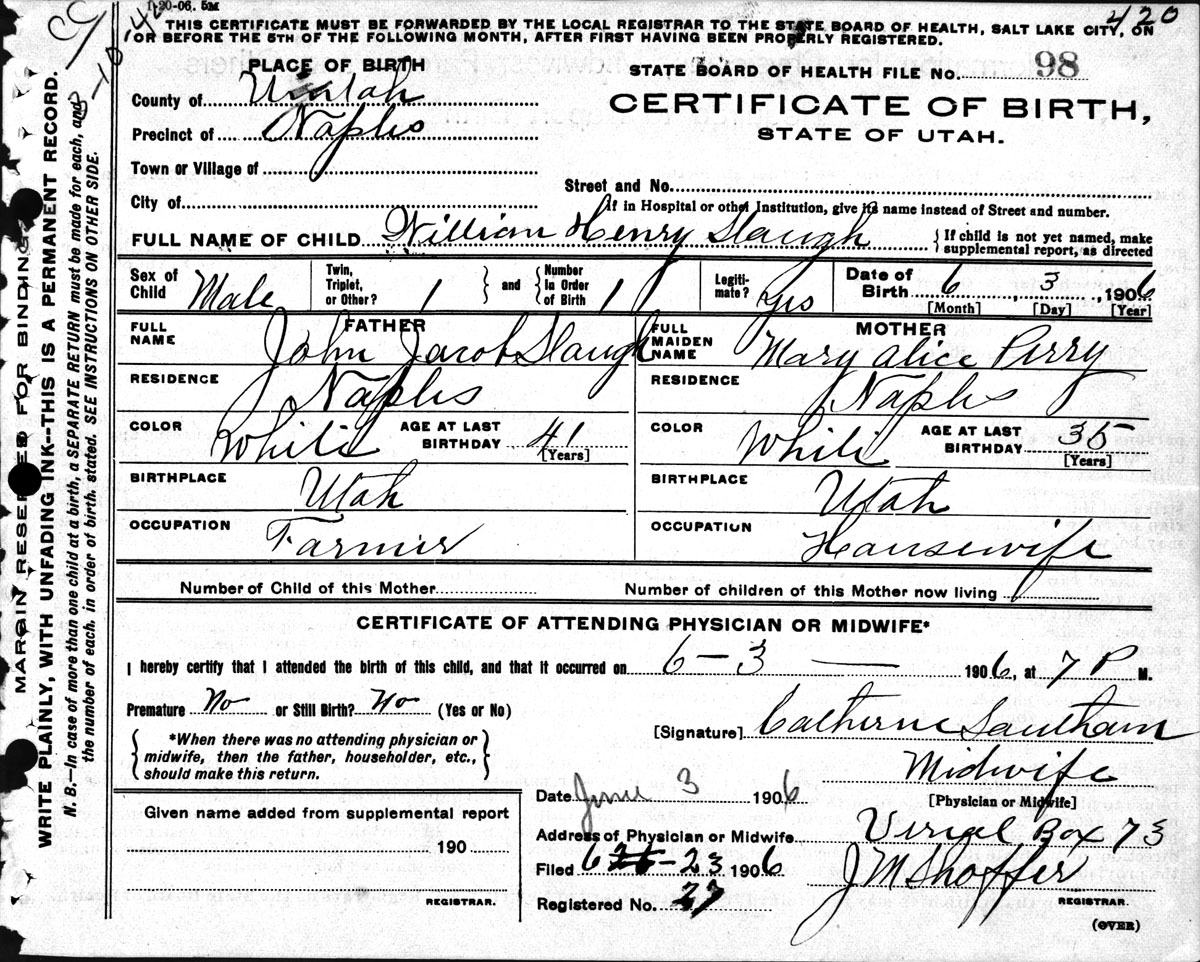 1-20-06. 5M
420
THIS CERTIFICATE MUST BE FORWARDED BY THE LOCAL REGISTRAR TO THE STATE BOARD OF HEALTH, SALT LAKE CITY, ON
OR BEFORE THE 5TH OF THE FOLLOWING MONTH, AFTER FIRST HAVING BEEN PROPERLY REGISTERED.
PLACE OF BIRTH
STATE BOARD OF HEALTH FILE No. 98
County of Uintah
CERTIFICATE OF BIRTH,
Precinct of Naples
STATE OF UTAH.
Town or Village of
Street and No.
City of
If in Hospital or other Institution, give its name instead of Street and number.
FULL NAME OF CHILD William Henry Slaugh { If child is not yet named, make supplemental report, as directed
Sex of Child Male Twin, Triplet, or Other? 1 } and { Number In Order of Birth 1 Legiti-mate? yes Date of Birth 6, 3, 1906
[Month] [Day] [Year]
FATHER
MOTHER
FULL NAME John Jacob Slaugh
FULL MAIDEN NAME Mary Alice Perry
RESIDENCE Naples
RESIDENCE Naples
COLOR White AGE AT LAST BIRTHDAY 41 [Years]
COLOR White AGE AT LAST BIRTHDAY 35 [Years]
BIRTHPLACE Utah
BIRTHPLACE Utah
OCCUPATION Farmer
OCCUPATION Housewife
Number of Child of this Mother
Number of children of this Mother now living
CERTIFICATE OF ATTENDING PHYSICIAN OR MIDWIFE*
I hereby certify that I attended the birth of this child, and that it occurred on 6-3 — 1906, at 7 P M.
Premature No or Still Birth? No (Yes or No)
[Signature] Catherine Southam
{ *When there was no attending physician or midwife, then the father, householder, etc., should make this return. }
Midwife
[Physician or Midwife]
Date June 3 1906
Given name added from supplemental report
Address of Physician or Midwife Vernal Box 73
190
Filed 6 - 23 1906
J M Shaffer
REGISTRAR.
Registered No. 27
REGISTRAR.
(OVER)
MARGIN RESERVED FOR BINDING
WRITE PLAINLY, WITH UNFADING INK—THIS IS A PERMANENT RECORD.
N. B.—In case of more than one child at a birth, a SEPARATE RETURN must be made for each, and
the number of each, in order of birth, stated. SEE INSTRUCTIONS ON OTHER SIDE.